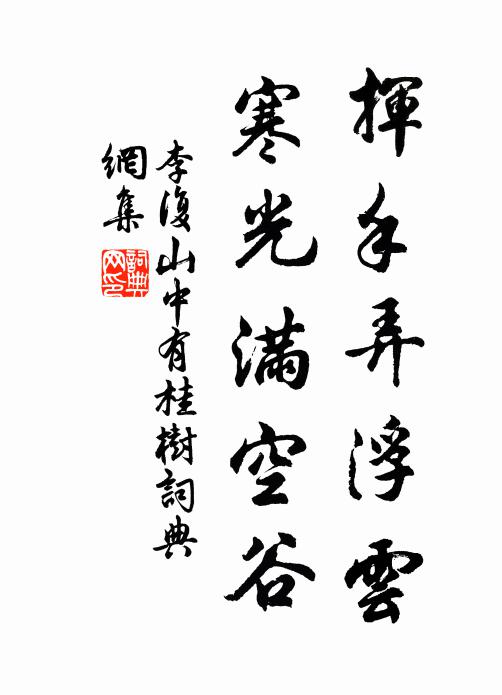 揮手弄浮雲
寒光滿空谷
李復山中有桂樹詞典
網集
詞典网印